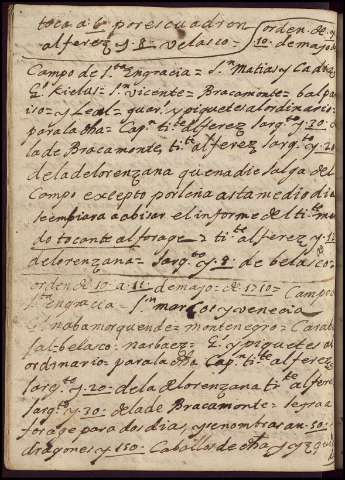 toca a 6 por escuadron
alferez y 8 velasco = orden de
10 de mayo
Campo de Sta engracia = Sn Matias y Cadiz
Sn Vicente = Bracamonte = balpa
iso = y Leal = guar. y piquetes al ordinario =
para la dha = Capn tite alferez sargto y 20 de
la de Bracamonte, tite alferez sargto y 20
de la de lorenzana que nadie salga del
Campo excepto por leña asta medio dia
se embiara abiser el informe del tite
do tocante al forage = tite alferez y
de lorenzana = sargto y 8 de belasco =
orden de 10 a 11 de mayo = de 1710 = Campo
Sta engracia = Sn marcos y venecia
montenegro = Caraba
fal = belasco = narbaez = y piquetes al
ordinario = para la dha Capn tite alferez
sargto y 20 = de la de Lorenzana tite alfere
sargto y 20 = de la de Bracamonte = se yra a
forage para dos dias, y se nombraran 50
dragones y 150 Caballos de dha y